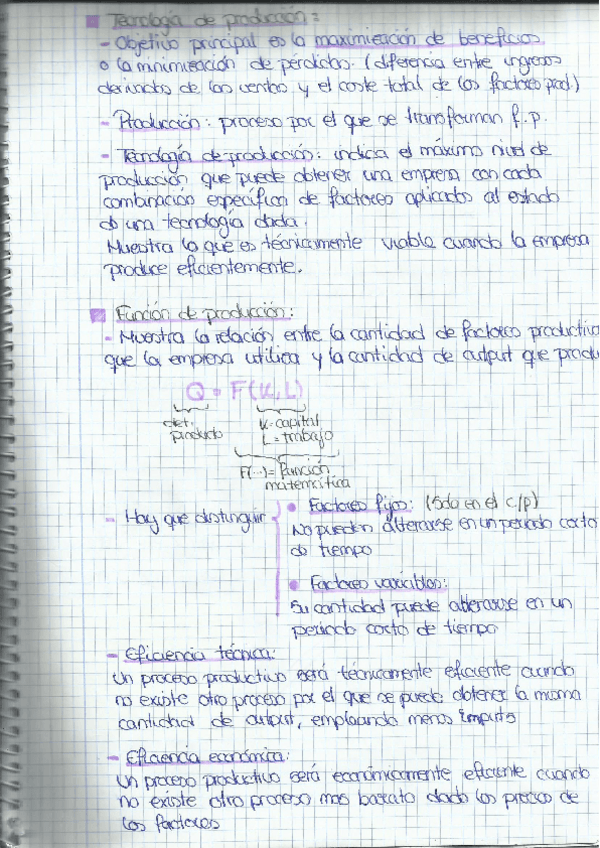 Tecnología de producción:
- Objetivo principal es la maximización de beneficios
o la minimización de pérdidas. (diferencia entre ingresos
derivados de las ventas y el coste total de los factores prod.)
- Producción: proceso por el que se transforman f.p.
- Tecnología de producción: indica el máximo nivel de
producción que puede obtener una empresa con cada
combinación específica de factores aplicados al estado
de una tecnología dada.
Muestra lo que es técnicamente viable cuando la empresa
produce eficientemente.
Función de producción:
- Muestra la relación entre la cantidad de factores productivo
que la empresa utiliza y la cantidad de output que produ
Q = F(K,L)
K=capital
producto L=trabajo
F(...)=función
matemática
- Hay que distinguir
• Factores fijos: (Sólo en el c/p)
No pueden alterarse en un periodo corto
de tiempo
• Factores variables:
Su cantidad puede alterarse en un
periodo corto de tiempo
- Eficiencia técnica:
Un proceso productivo será técnicamente eficiente cuando
no existe otro proceso por el que se pueda obtener la misma
cantidad de output, empleando menos imputs
- Eficiencia económica:
Un proceso productivo será económicamente eficiente cuando
no existe otro proceso mas barato dado los precios de
los factores